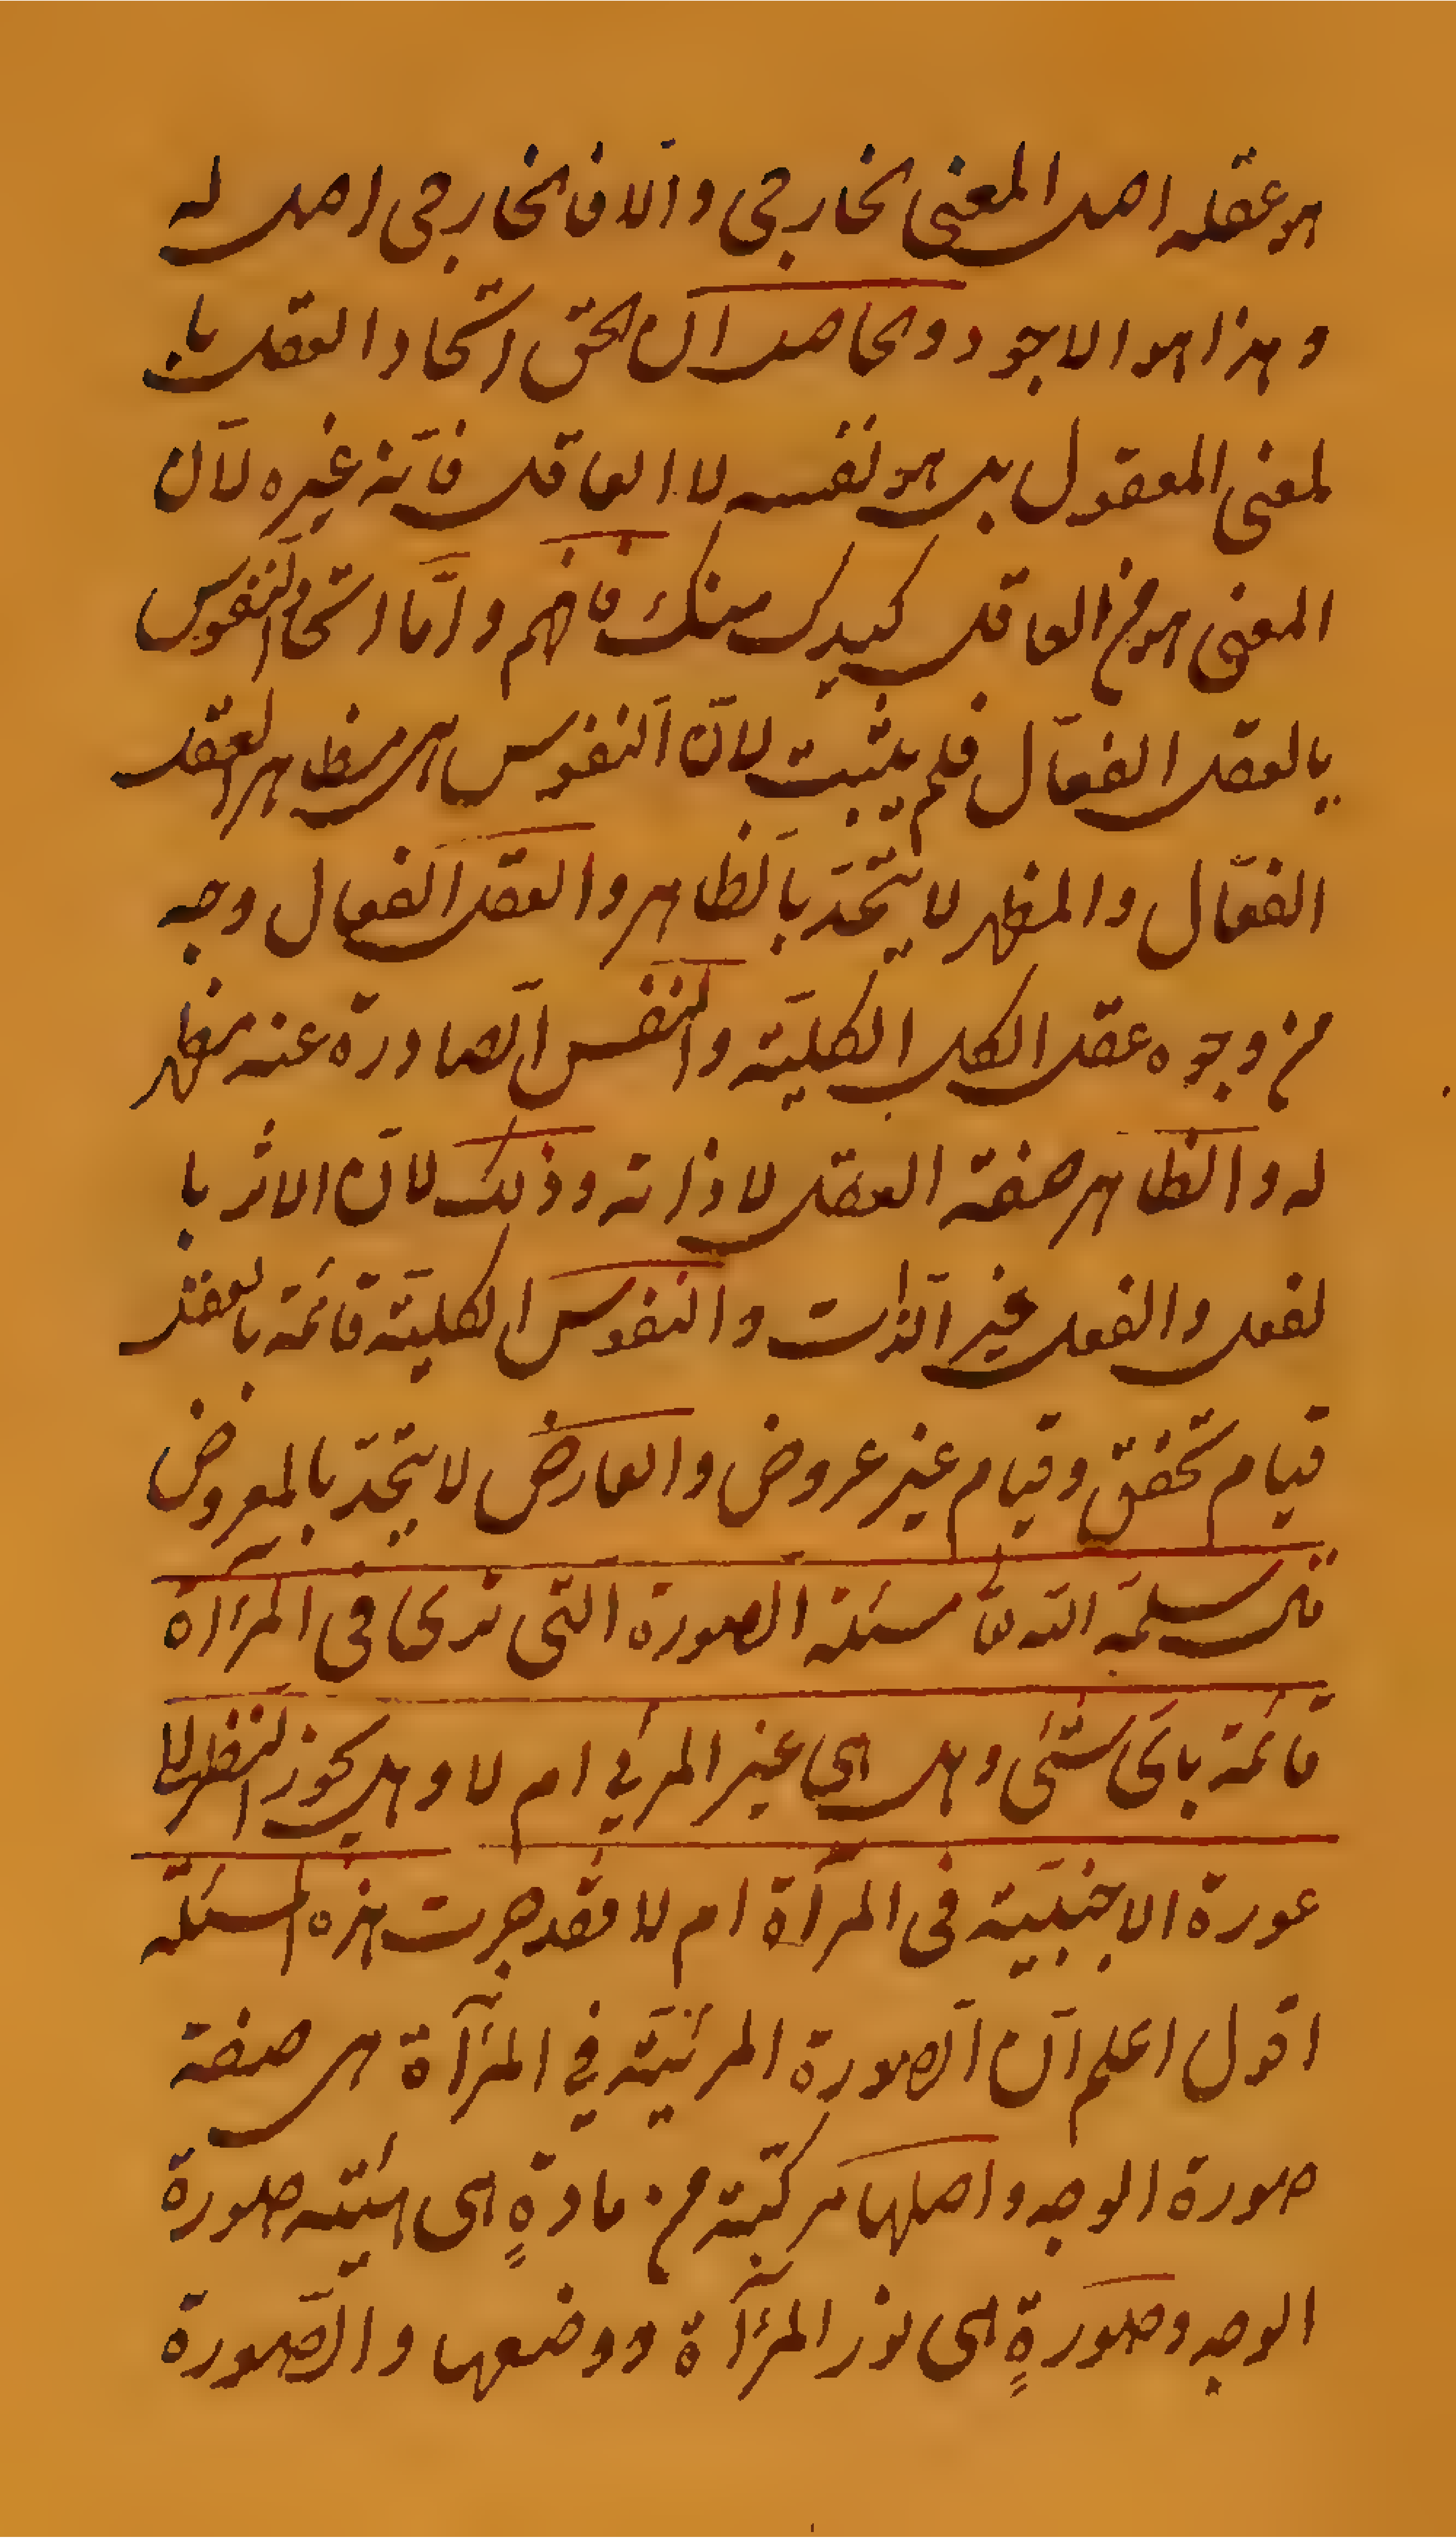 هو عقله اصل المعنى الخارجى والا فالخارجى اصل له
وهذا هو الاجود والحاصل انّ الحق اتّحاد العقل با
لمعنى المعقول بل هو نفسه لا العاقل فانّه غيره لانّ
المعنى هو من العاقل كيدك منك فافهم وامّا اتحاد النّفوس
بالعقل الفعّال فلم يثبت لانّ النّفوس هى مظاهر العقل
الفعّال والمظهر لا يتّحد بالظّاهر والعقل الفعال وجه
من وجوه عقل الكل الكليّة والنّفس الصّادرة عنه مظهر
له والظّاهر صفة العقل لا ذاته وذلك لانّ الاثر با
لفعل والفعل غير الذّات والنفوس الكليّة قائمة بالعقل
قيام تحقق وقيام غير عروض والعارض لا يتّحد بالمعروض
قال سلمّه اللّه تعا مسئلة الصورة التى ترى فى المرآة
قائمة باىّ شئ وهل هى غير المرئي ام لا وهل يجوز النظر الى
عورة الاجنبيّة فى المرآة ام لا فقد جرت هذه المسئلة
اقول اعلم انّ الصّورة المرئيّة في المرآة هى صفة
صورة الوجه واصلها مركّبة من مادةٍ هى هيئة صورة
الوجه وصورةٍ هى نور المرآة ووضعها والصّورة